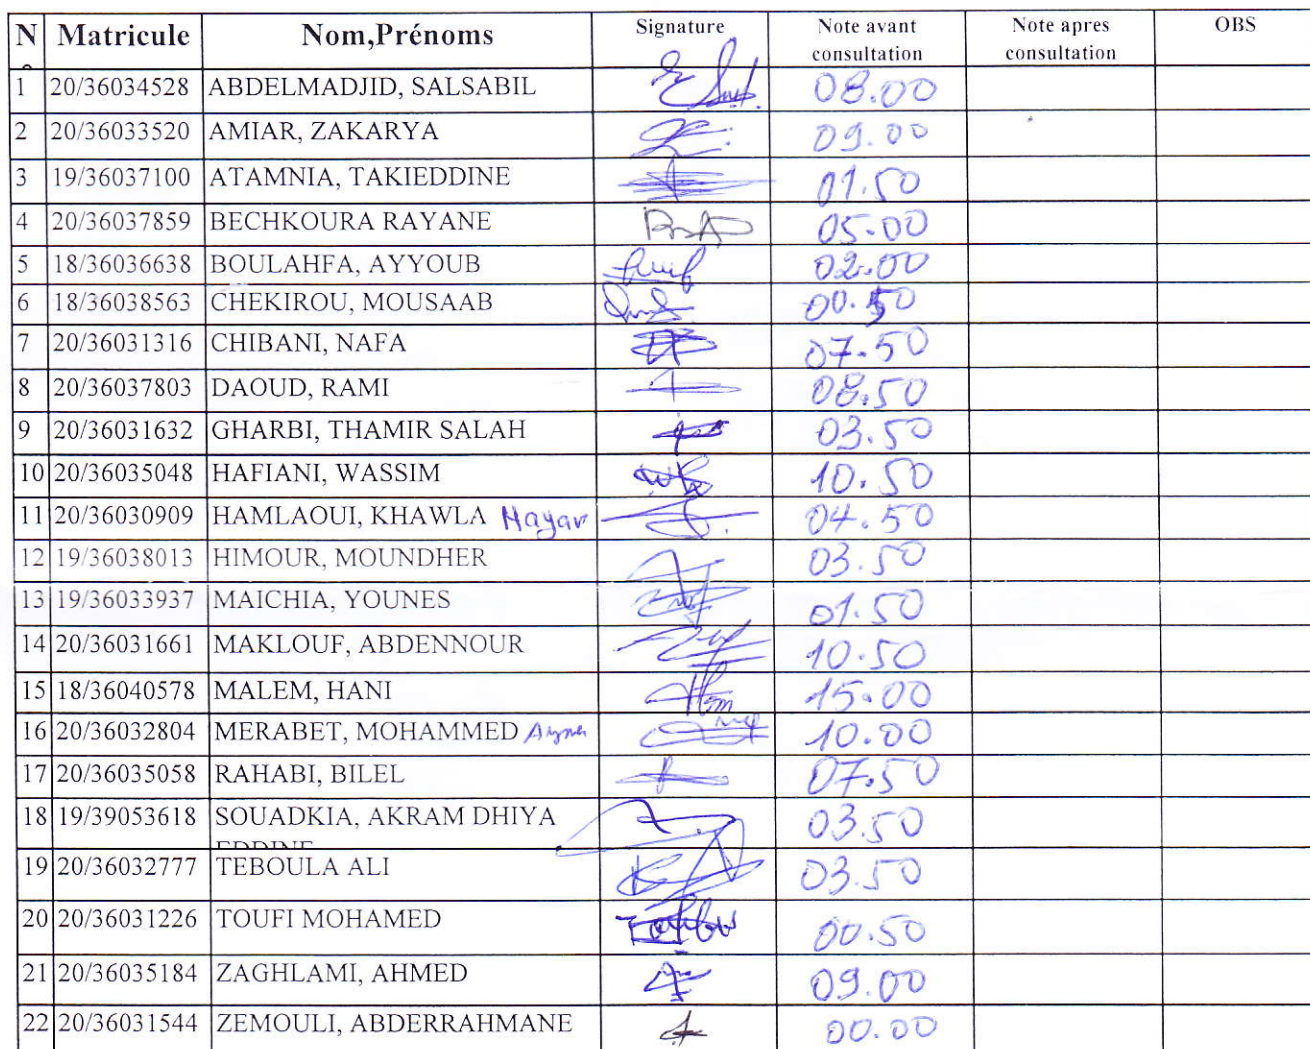 N° Matricule Nom,Prénoms Signature Note avant consultation Note apres consultation OBS
1 20/36034528 ABDELMADJID, SALSABIL 08.00
2 20/36033520 AMIAR, ZAKARYA 09.00
3 19/36037100 ATAMNIA, TAKIEDDINE 01.50
4 20/36037859 BECHKOURA RAYANE 05.00
5 18/36036638 BOULAHFA, AYYOUB 02.00
6 18/36038563 CHEKIROU, MOUSAAB 00.50
7 20/36031316 CHIBANI, NAFA 07.50
8 20/36037803 DAOUD, RAMI 08.50
9 20/36031632 GHARBI, THAMIR SALAH 03.50
10 20/36035048 HAFIANI, WASSIM 10.50
11 20/36030909 HAMLAOUI, KHAWLA Hayar 04.50
12 19/36038013 HIMOUR, MOUNDHER 03.50
13 19/36033937 MAICHIA, YOUNES 01.50
14 20/36031661 MAKLOUF, ABDENNOUR 10.50
15 18/36040578 MALEM, HANI 15.00
16 20/36032804 MERABET, MOHAMMED 10.00
17 20/36035058 RAHABI, BILEL 07.50
18 19/39053618 SOUADKIA, AKRAM DHIYA 03.50
EDDINE
19 20/36032777 TEBOULA ALI 03.50
20 20/36031226 TOUFI MOHAMED 00.50
21 20/36035184 ZAGHLAMI, AHMED 09.00
22 20/36031544 ZEMOULI, ABDERRAHMANE 00.00